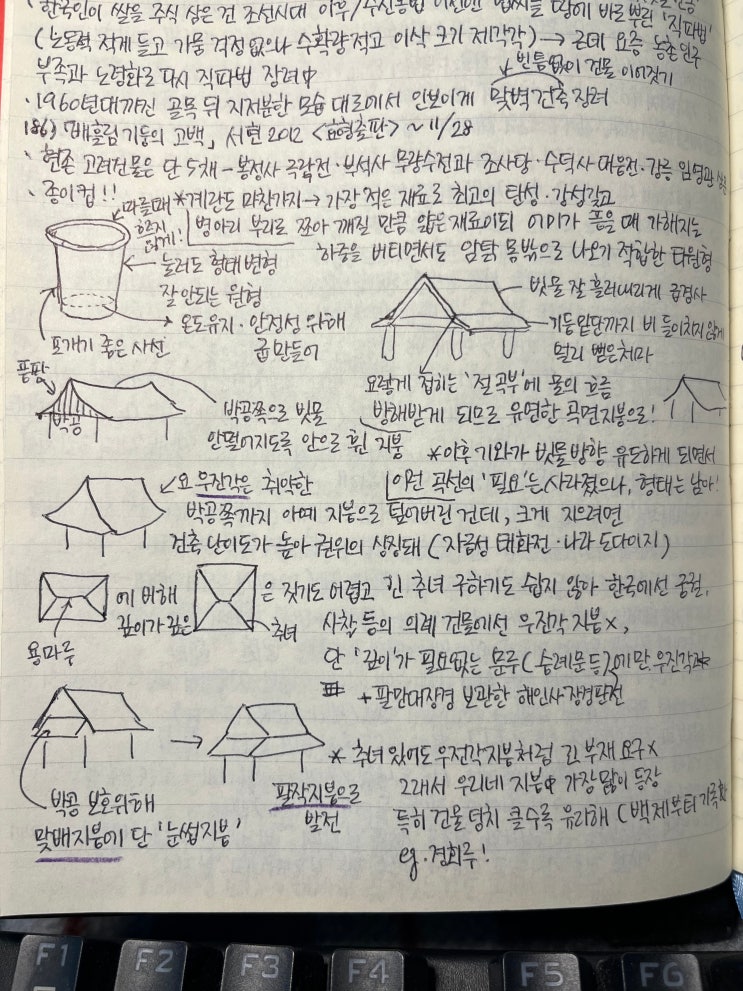 · 한국인이 쌀을 주식 삼은 건 조선시대 이후/수전농법 이전엔 볍씨를 땅에 바로 뿌린 '직파법'
(노동력 적게 들고 가뭄 걱정 없으나 수확량 적고 이삭 크기 제각각) → 근데 요즘 농촌 인구
부족과 노령화로 다시 직파법 장려中
빈틈없이 건물 이어짓기
· 1960년대까진 골목 뒤 지저분한 모습 대로에서 안보이게 맞벽건축 장려
186) 「배흘림 기둥의 고백」, 서현 2012 <효형출판> ~11/28
· 현존 고려건물은 단 5채 - 봉정사 극락전·부석사 무량수전과 조사당·수덕사 대웅전·강릉 임영관
· 종이컵!!
마를때 흐르지 않게!
*계란도 마찬가지 → 가장 적은 재료로 최고의 탄성·강성갖고
병아리 부리로 쪼아 깨질 만큼 얇은 재료이되 어미가 품을 때 가해지는
하중을 버티면서도 암탉 몸밖으로 나오기 적합한 타원형
눌러도 형태변형
잘 안되는 원형
온도유지·안정성 위해
굽 만들어
포개기 좋은 사선
빗물 잘 흘러내리게 급경사
기둥 밑단까지 비 들이치지 않게
멀리 뻗은 처마
요렇게 접히는 '절곡부'에 물의 흐름
방해받게 되므로 유연한 곡면지붕으로!
풍판
박공
박공쪽으로 빗물
안떨어지도록 안으로 휜 지붕
*이후 기와가 빗물방향 유도하게 되면서
이런 곡선의 '필요'는 사라졌으나, 형태는 남아!
요 우진각은 취약한
박공쪽까지 아예 지붕으로 덮어버린 건데, 크게 지으려면
건축 난이도가 높아 권위의 상징돼 (자금성 태화전·나라 도다이지)
에 비해
깊이가 깊은
은 짓기도 어렵고 긴 추녀 구하기도 쉽지 않아 한국에선 궁궐,
용마루
추녀
사찰 등의 의례 건물에선 우진각 지붕 x,
단 '깊이'가 필요없는 문루(숭례문 등)에만 우진각
+ 팔만대장경 보관한 해인사 장경판전
박공 보호위해
맞배지붕에 단 '눈썹지붕'
팔작지붕으로
발전
* 추녀 있어도 우진각지붕처럼 긴 부재 요구 x
그래서 우리네 지붕中 가장 많이 등장
특히 건물 덩치 클수록 유리해 (백제부터 기록
eg. 경회루!
F1
F2
F3
F4
F5
F6